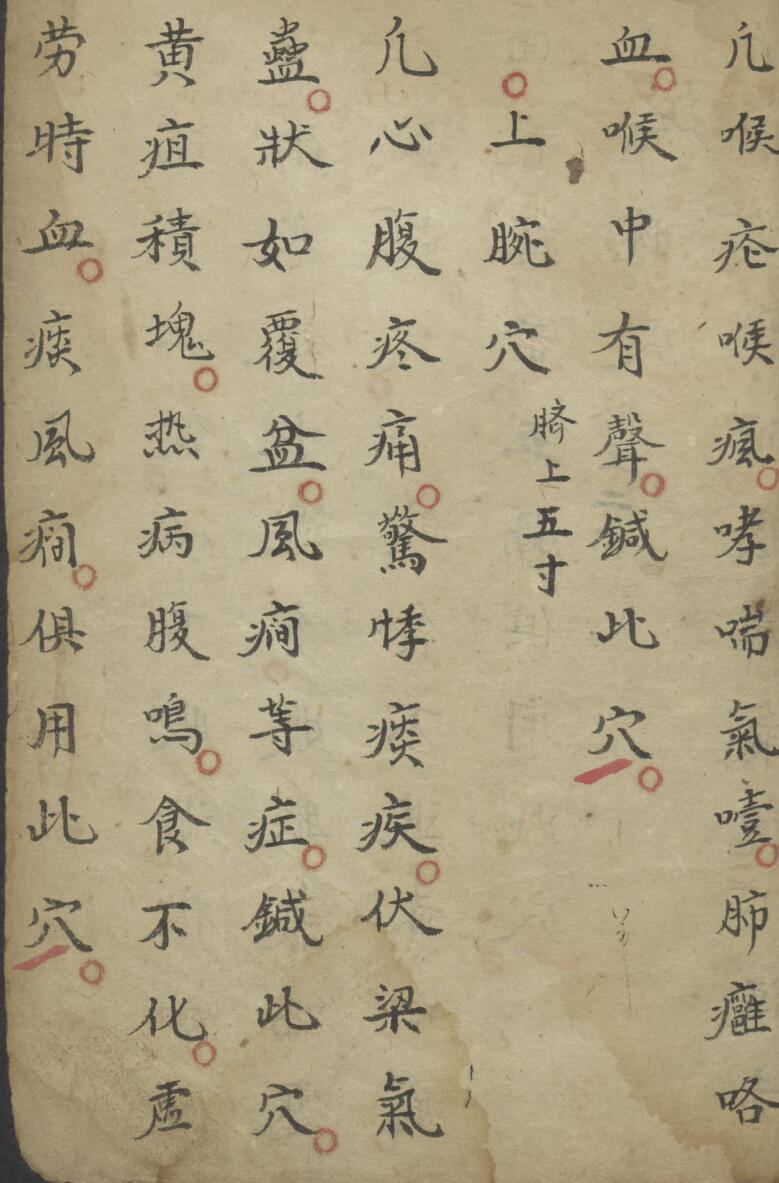 凢喉疮喉瘋○哮喘氣噎○肺癰咯
血○喉中有聲○鍼此穴○
○上腕穴臍上五寸
凢心腹疼痛○驚悸痰疾○伏梁氣
蠱○狀如覆盆○風癇等症○鍼此穴○
黄疸積塊○热病腹鳴○食不化○虚
劳時血○痰風癇○俱用此穴○